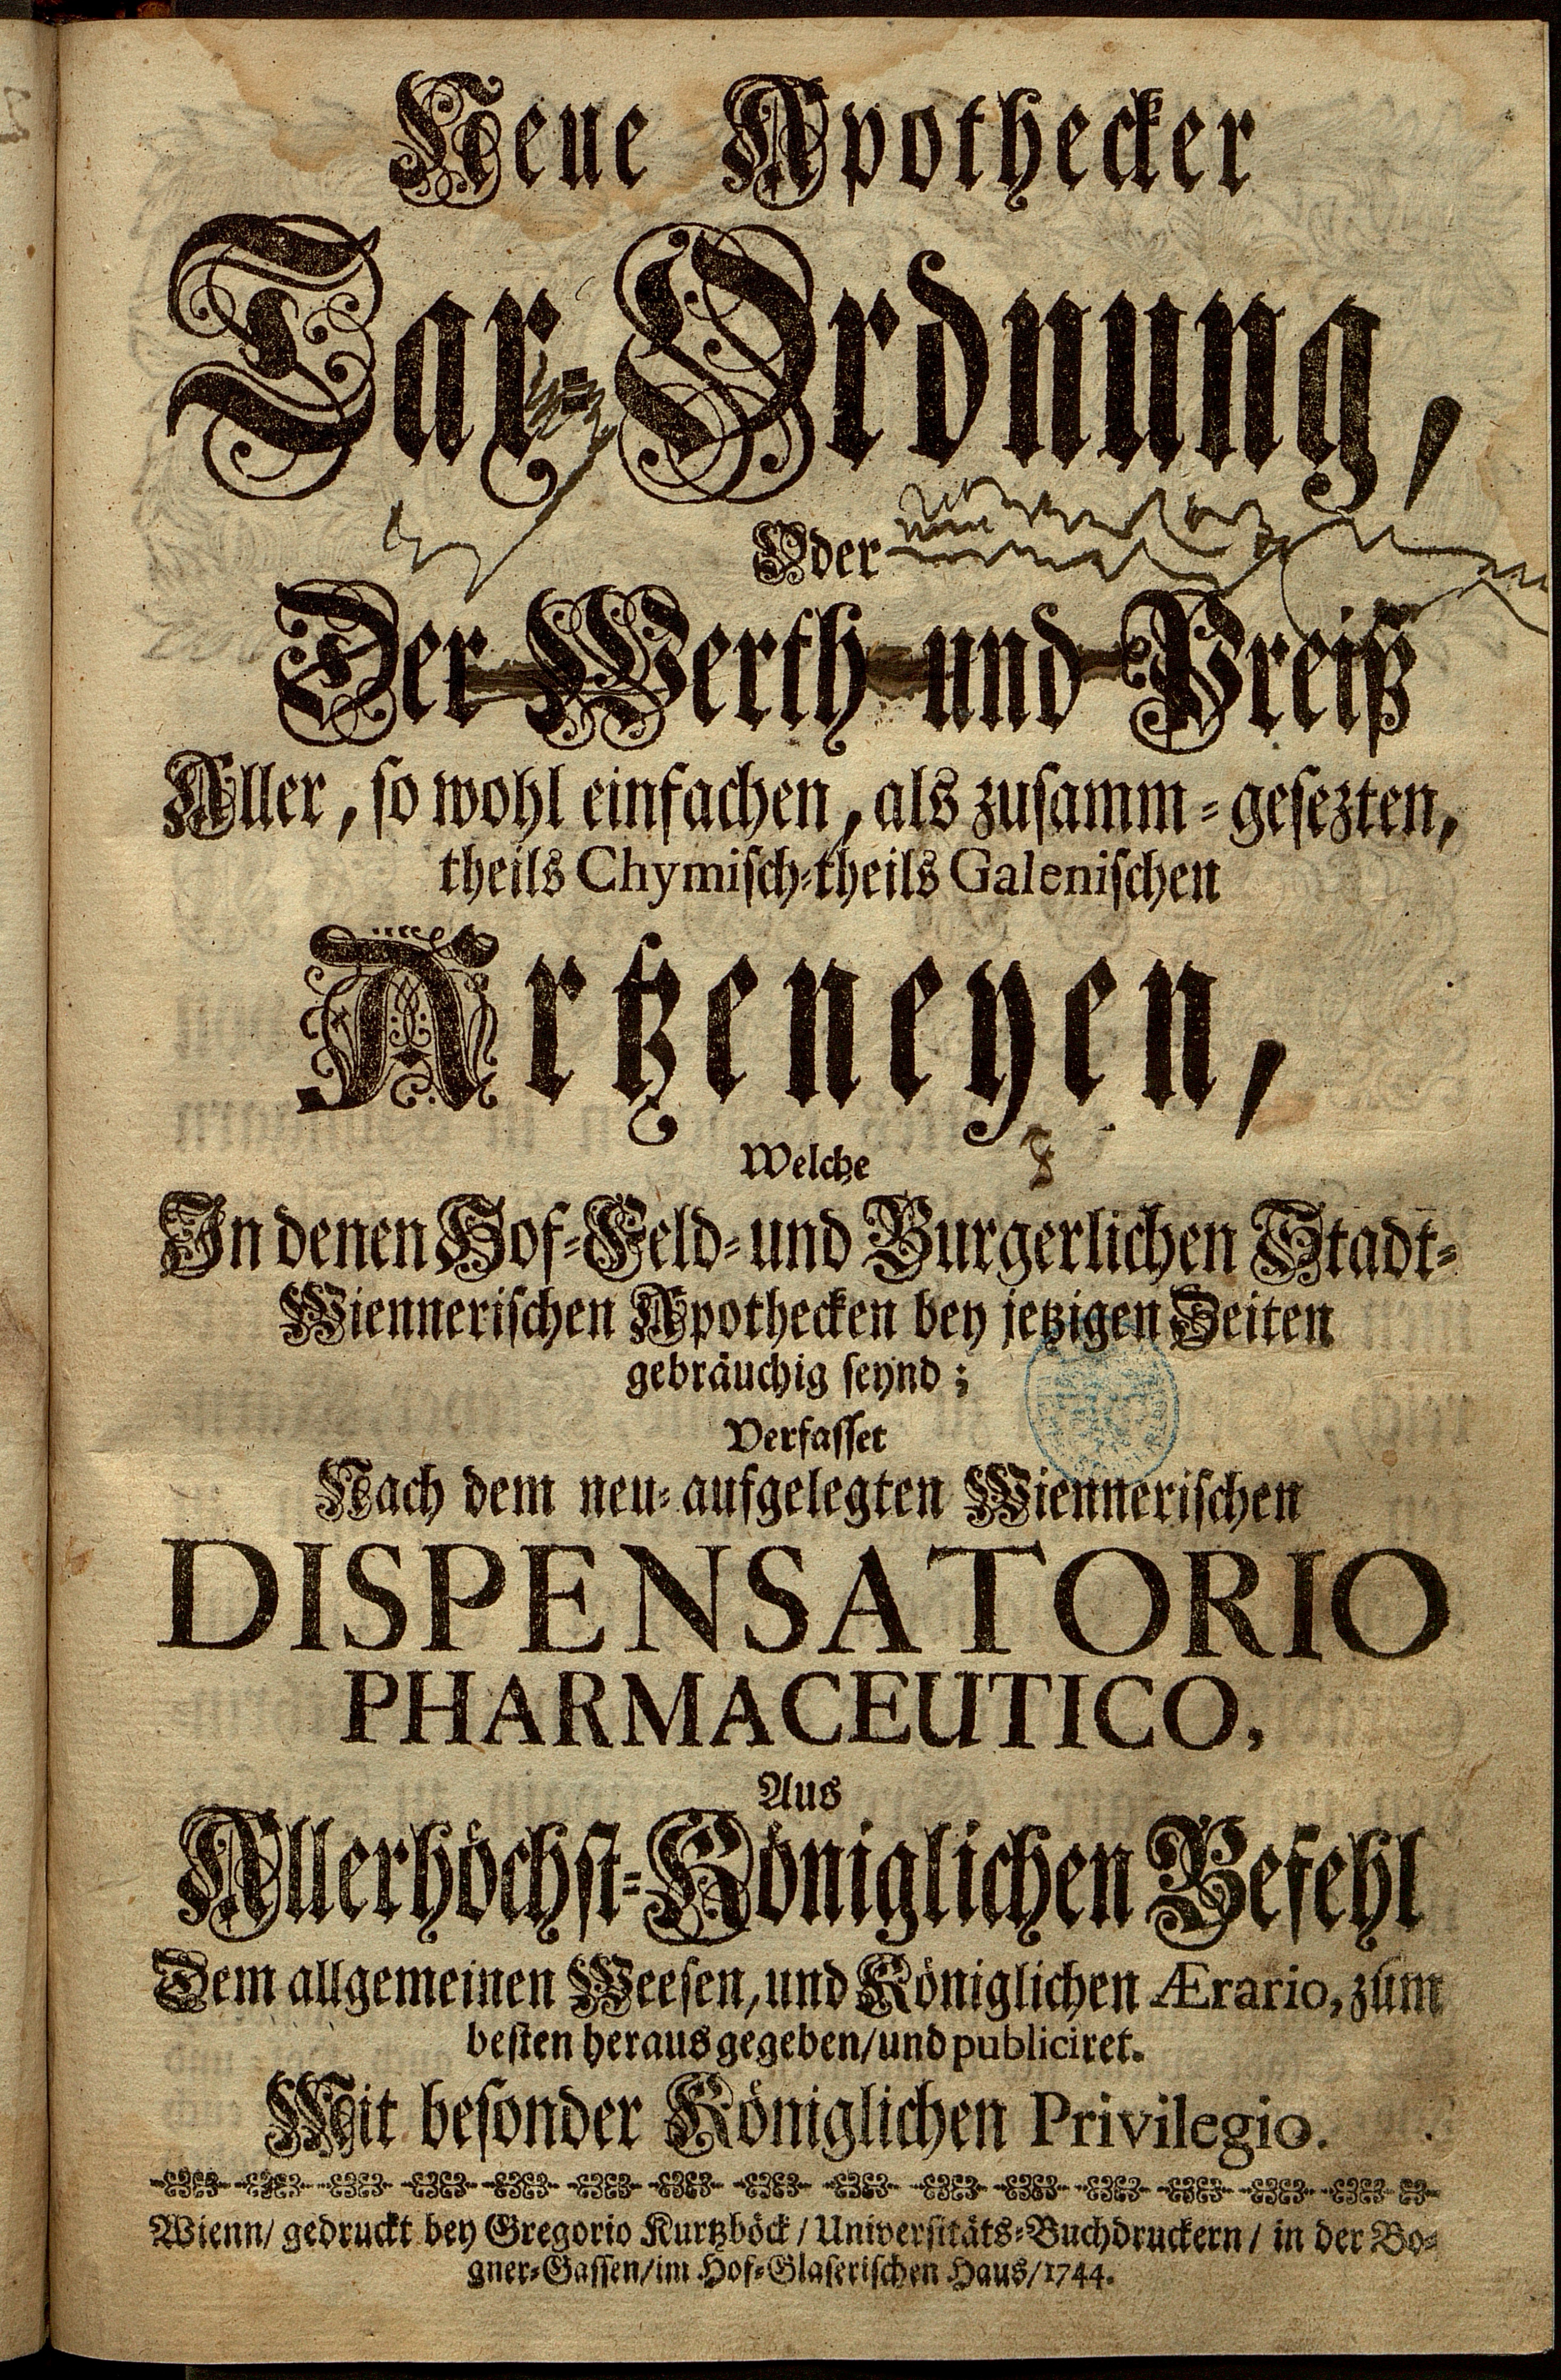 Neue Apothecker
Tax-Ordnung,
Oder
Der Werth und Preiß
Aller, so wohl einfachen, als zusamm-gesezten,
theils Chymisch-theils Galenischen
Artzeneyen,
Welche
In denen Hof-Feld-und Burgerlichen Stadt-
Wiennerischen Apothecken bey jetzigen Zeiten
gebräuchig seynd;
Verfasset
Nach dem neu-aufgelegten Wiennerischen
DISPENSATORIO
PHARMACEUTICO,
Aus
Allerhöchst-Königlichen Befehl
Dem allgemeinen Weesen, und Königlichen Ærario, zum
besten heraus gegeben/und publiciret.
Mit besonder Königlichen Privilegio.
Wienn/ gedruckt bey Gregorio Kurtzböck/ Universitäts-Buchdruckern/ in der Bo-
gner-Gassen/im Hof-Glaserischen Haus/1744.